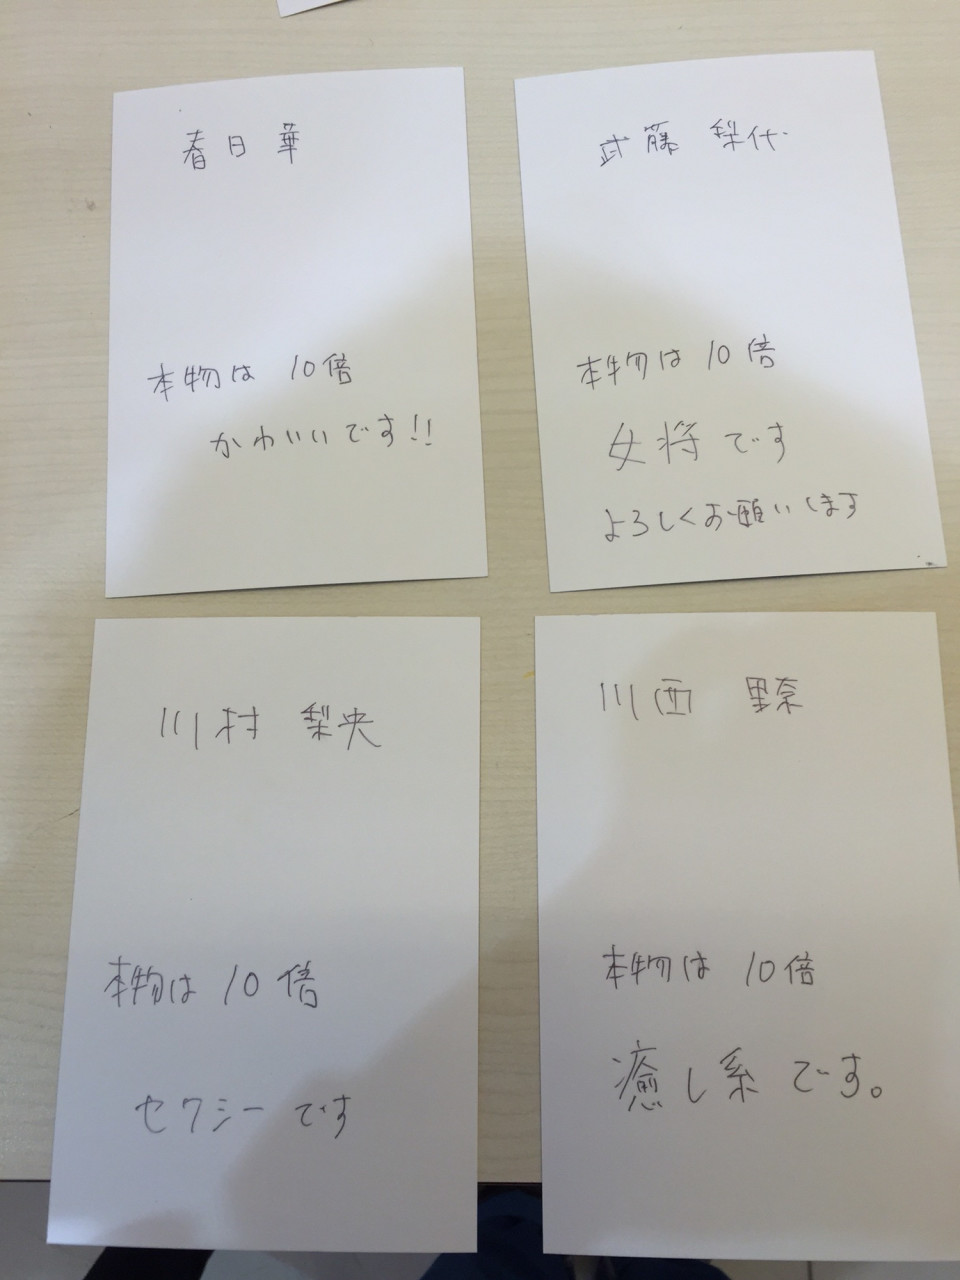 春日 華
本物は 10倍
かわいいです!!
武藤 梨代
本物は 10倍
女将です
よろしくお願いします
川村 梨央
本物は 10倍
セクシーです
川西 里奈
本物は 10倍
癒し系です。